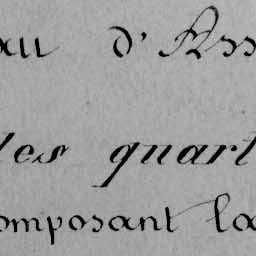 au d'Ass
des quart
omposant la